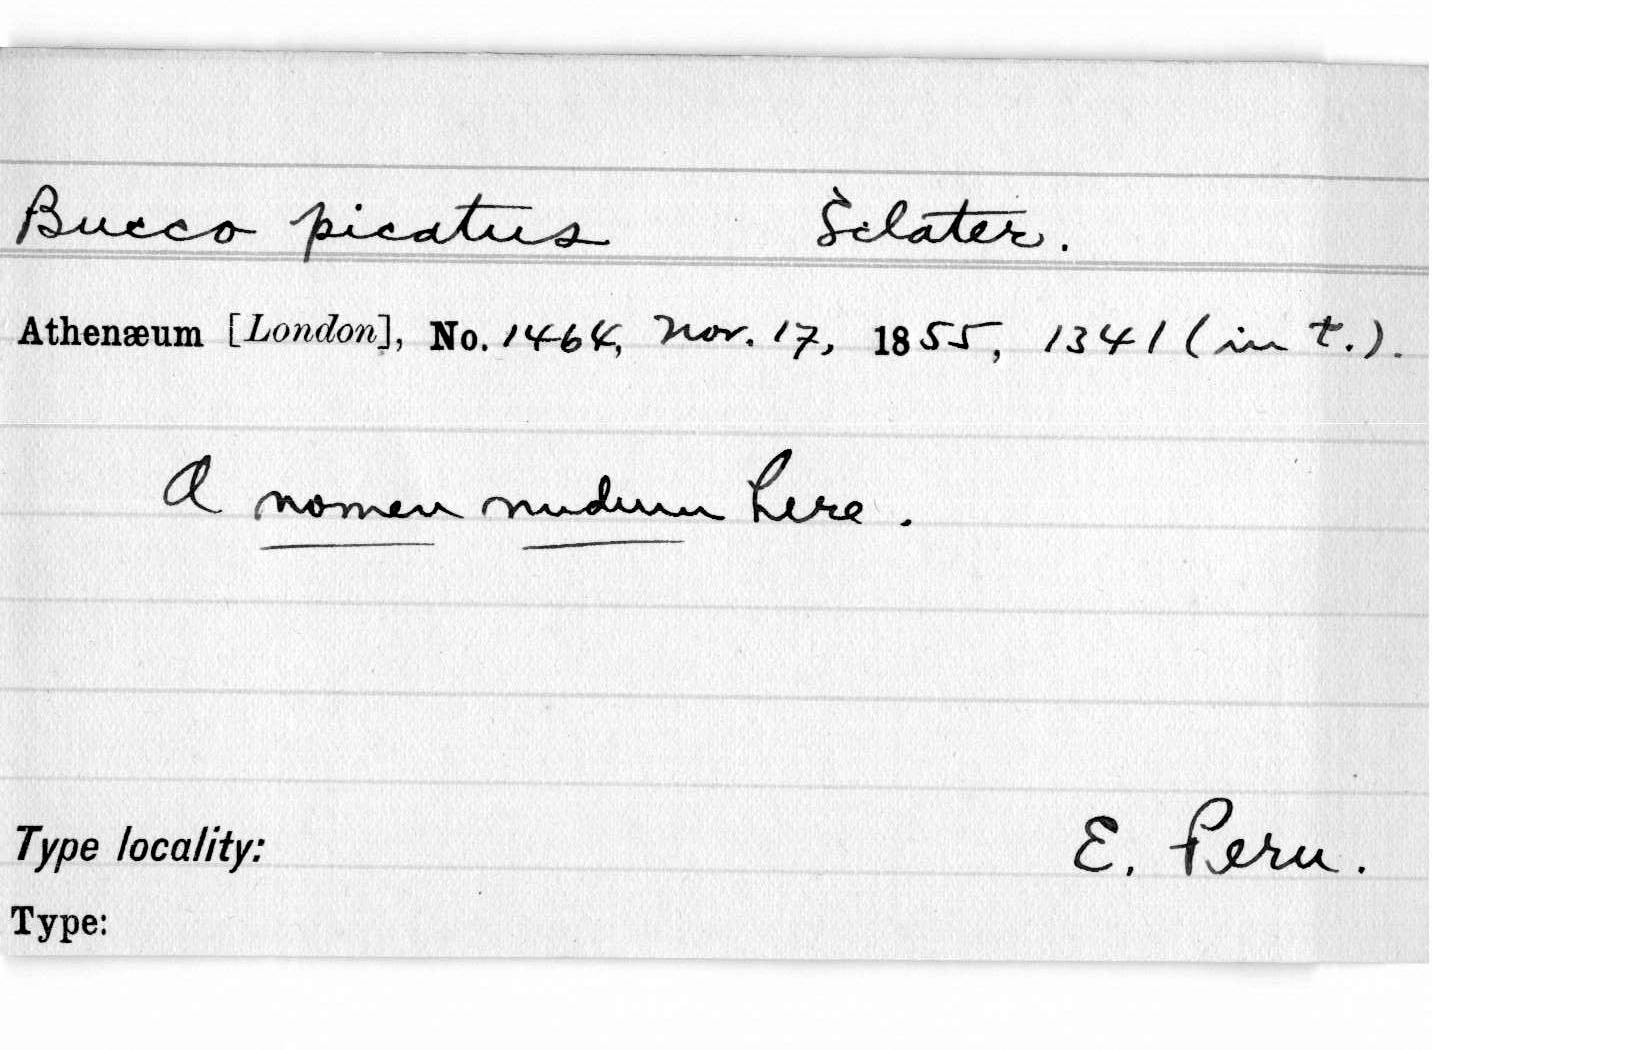 Bucco picatus Sclater.
Athenæum [London], No. 1464, Nov. 17, 1855, 1341 (in t.).
A nomen nudum here.
Type locality: E. Peru.
Type: